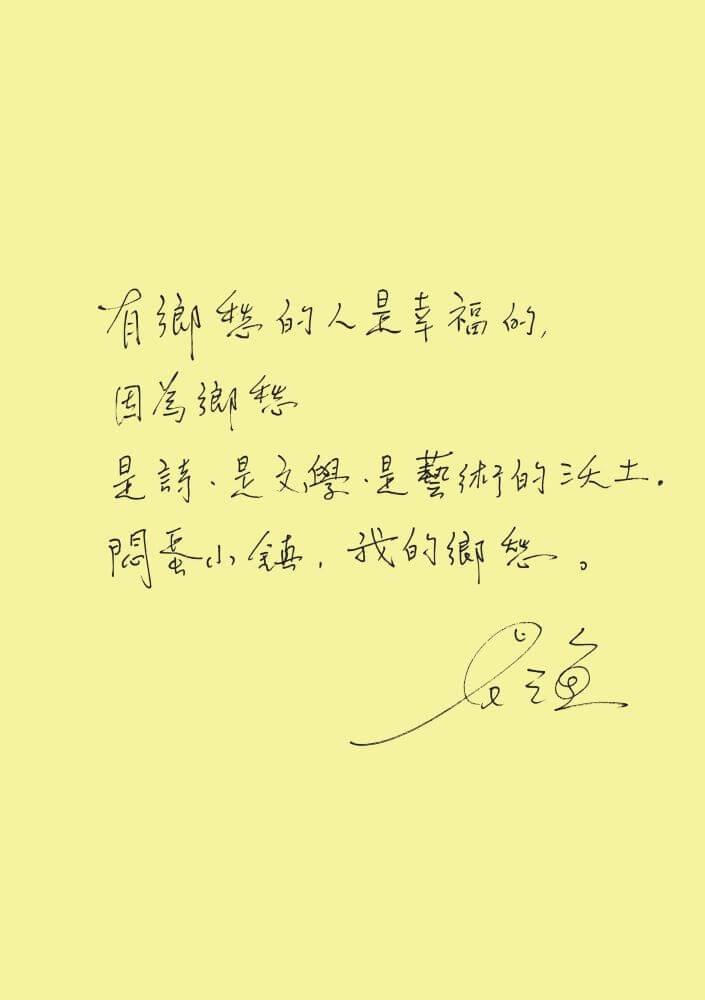 有鄉愁的人是幸福的,
因為鄉愁
是詩、是文學、是藝術的沃土.
悶蛋小鎮, 我的鄉愁。